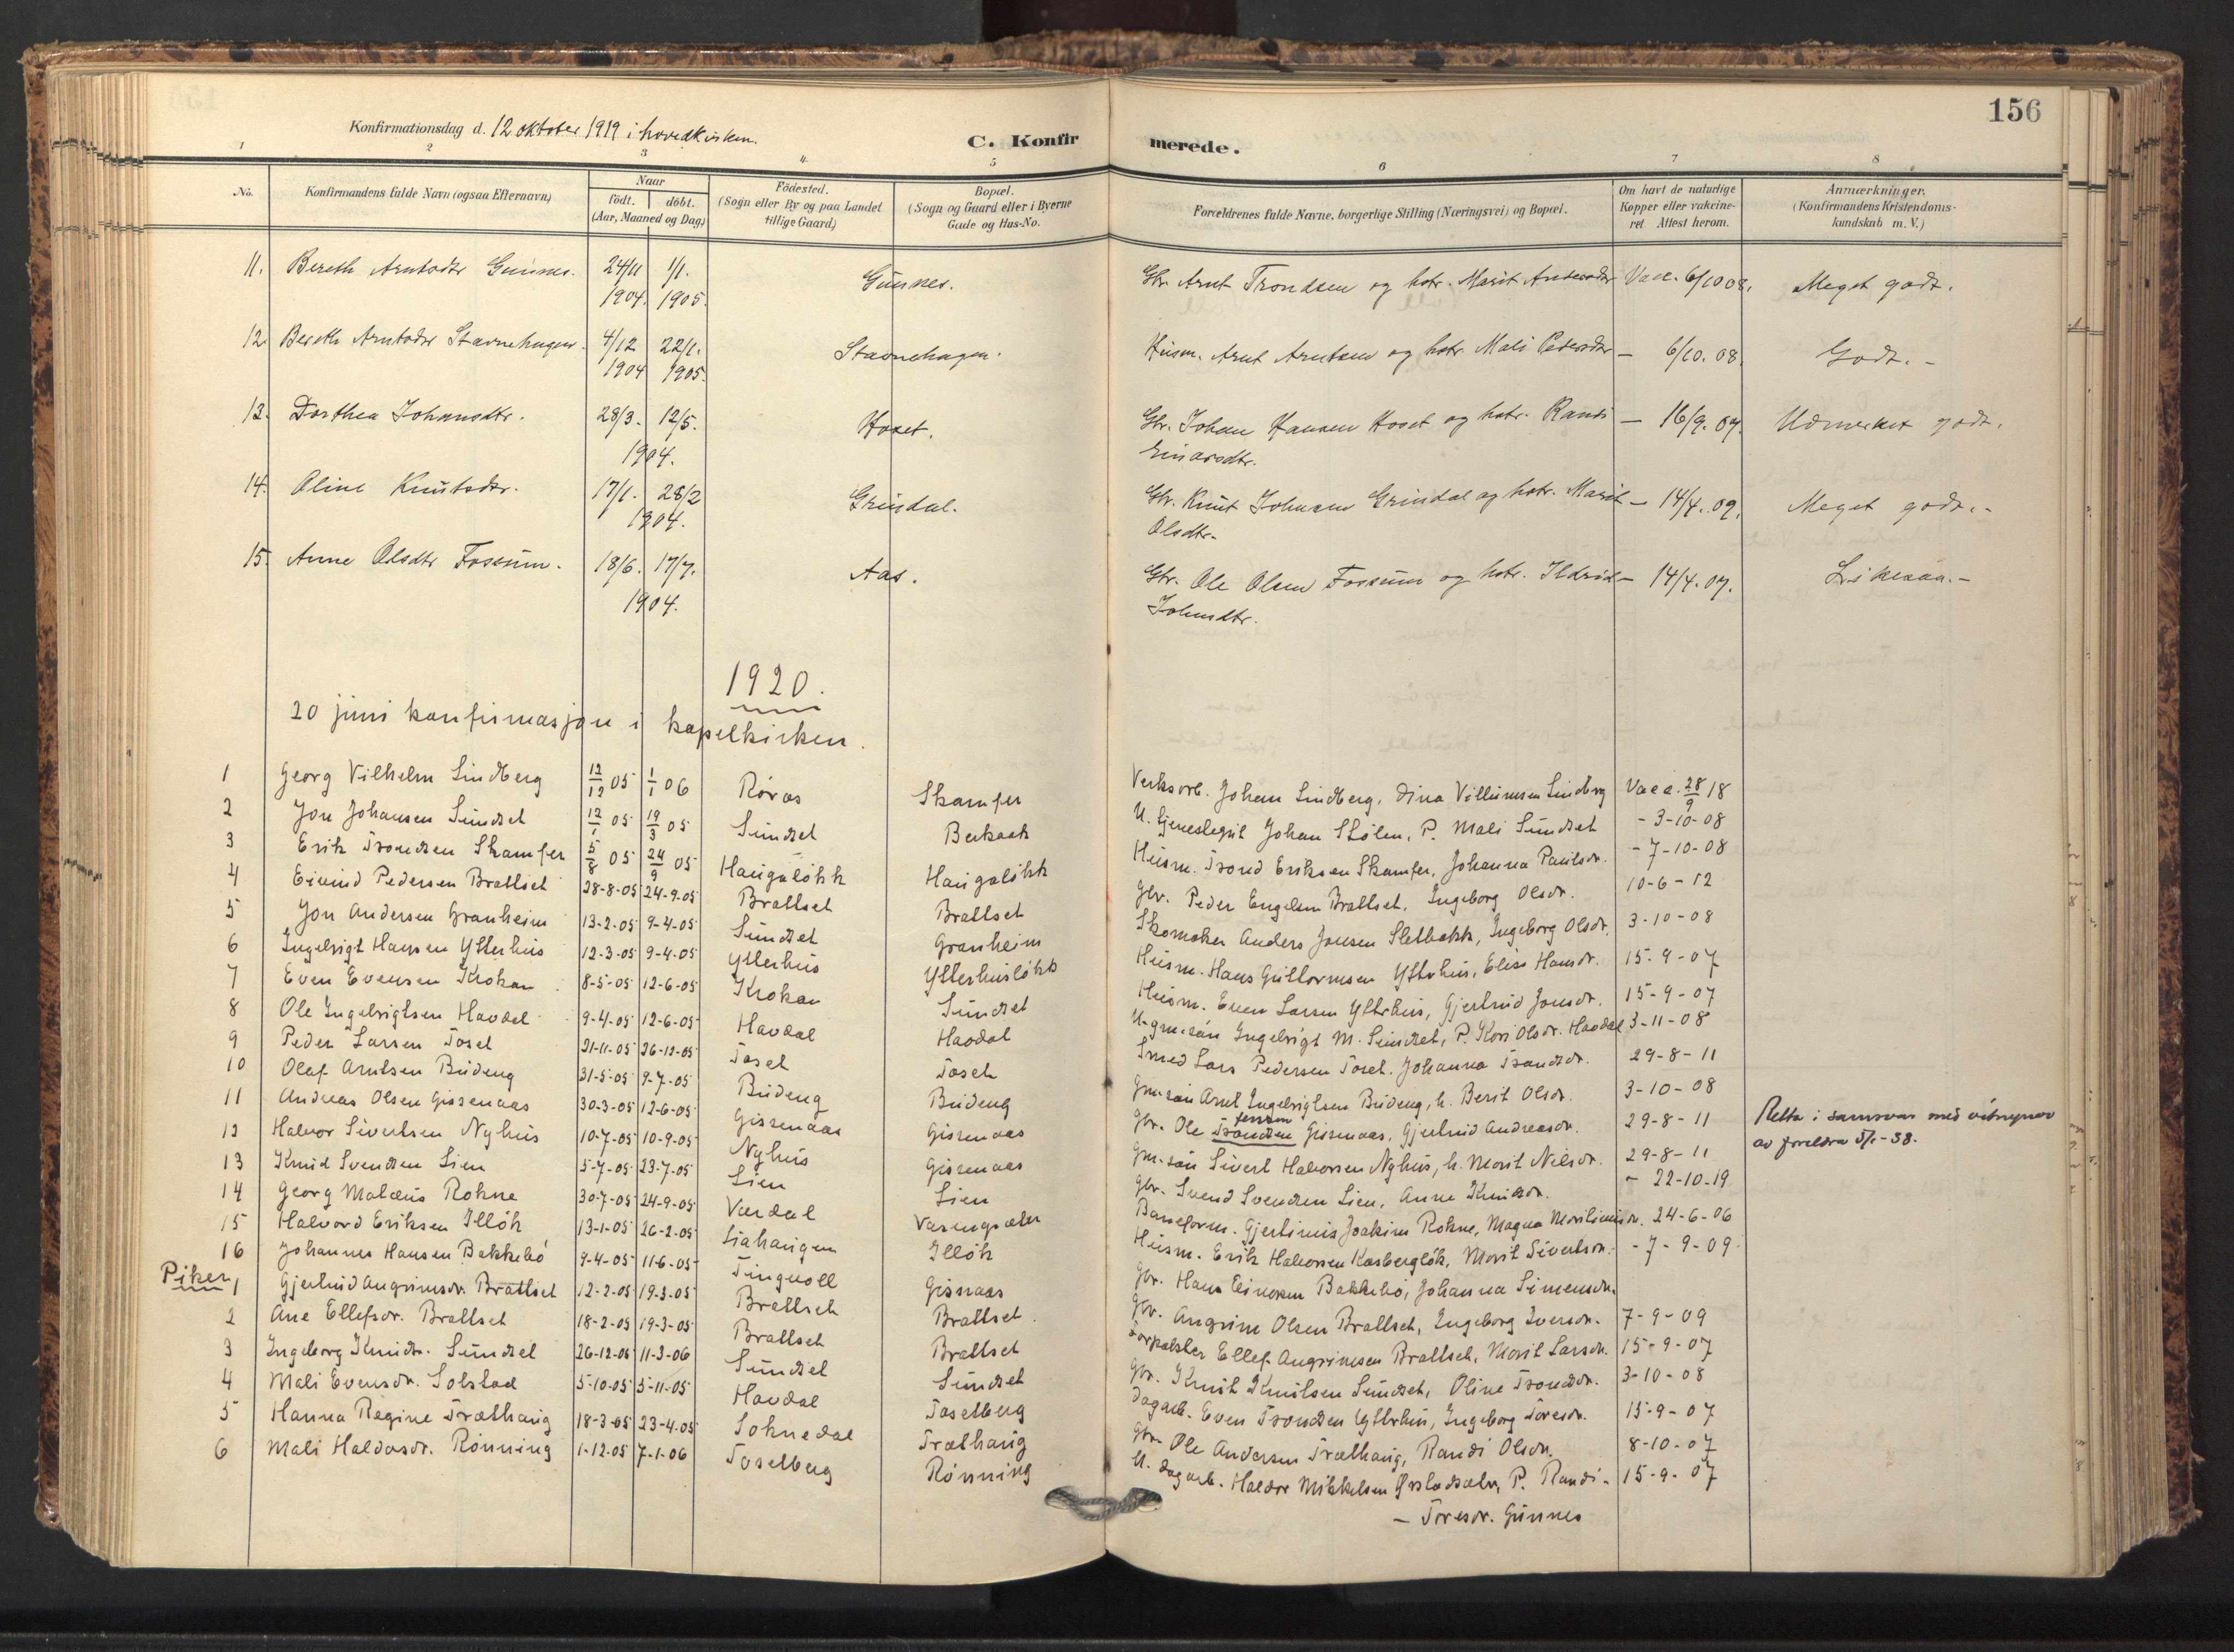 156
Konfirmationsdag d. 12 oktober 1919 i hovedkirken.
C. Konfirmerede.
1 2 3 4 5 6 7 8
No. Konfirmandens fulde Navn (ogsaa Efternavn) Naar født. døbt. (Aar, Maaned og Dag) Fødested. (Sogn eller By og paa Landet tillige Gaard) Bopæl. (Sogn og Gaard eller i Byerne Gade og Hus-No. Forældrenes fulde Navne, borgerlige Stilling (Næringsvei) og Bopæl. Om havt de naturlige Kopper eller vakcineret Attest herom. Anmærkninger. (Konfirmandens Kristendomskundskab m. V.)
11. Bereth Arntsdtr Gunnes. 24/11 1904. 1/1. 1905. Gunnes. Gbr. Arnt Trondsen og hstr. Marit Vacc. 6/10 08. Meget godt.
12. Bereth Arntsdtr Stavnehagen. 4/12 1904 22/1. 1905. Stavnehagen. Husm. Arnt Arntsen og hstr. Mali Pedersdtr — 6/10. 08. Godt. -
13. Dorthea Johansdtr. 28/3. 12/5. 1904. Hoset. Gbr. Johan Hansen Hoset og hstr. Randi — 16/9. 07.
Einarsdtr. Udmerket godt.
14. Oline Knutsdtr. 17/1. 28/2 1904. Grindal. Gbr. Knut Johnsen Grindal og hstr. Marit — 14/4. 09. Meget godt. -
Olsdtr.
15. Anne Olsdtr Fossum. 18/6. 17/7. 1904. Aas. Gbr. Ole Olsen Fossum og hstr. Ildrid — 14/4. 07. Likesaa. -
Johnsdtr.
1920.
20 juni konfirmasjon i kapelkirken.
1 Georg Vilhelm Lindberg 12/12 05 1/1 06 Røros Skamfer Verksarb. Johan Lindberg, Dina Villumsen Lindberg Vacc. 28/9 18
2 Jon Johansen Sundset 12/1 05 19/3 05 Sundset Berkaak U. tjenestegut Johan Stølen, P. Mali Sundset - 3-10-08
3 Erik Trondsen Skamfer 5/8 05 24/9 05 Haugaløkk Haugaløkk Husm. Trond Eriksen Skamfer, Johanna Paulsdr. - 7-10-08
4 Eivind Pedersen Brattset 28-8-05 24-9-05 Brattset Brattset Gbr. Peder Engelsen Brattset, Ingeborg Olsdr. 10-6-12
5 Jon Andersen Granheim 13-2-05 9-4-05 Sundset Granheim Skomaker Anders Jonsen Sletbakk, Ingeborg Olsdr. 3-10-08
6 Ingebrigt Hansen Ytterhus 12-3-05 9-4-05 Ytterhus Ytterhusløkk Husm. Hans Guttormsen Ytterhus, Elise Hansdr. 15-9-07
7 Even Evensen Krokan 8-5-05 12-6-05 Krokan Sundset Husm. Even Larsen Ytterhus, Gjertrud Jonsdr. 15-9-07
8 Ole Ingebrigtsen Havdal 9-4-05 12-6-05 Havdal Havdal U. gm.søn Ingebrigt M. Sundset, P. Kari Olsdr. Havdal 3-11-08
9 Peder Larsen Toset 21-11-05 26-12-05 Toset Toset Smed Lars Pedersen Toset. Johanna Trondsdr. 29-8-11
10 Olaf Arntsen Budeng 31-5-05 9-7-05 Budeng Budeng Gm.søn Arnt Ingebrigtsen Budeng, h. Berit Olsdr. 3-10-08
11 Andreas Olsen Gissenaas 30-3-05 12-6-05 Gissenaas Gissenaas Gbr. Ole Trondsen Gissenaas, Gjertrud Andreasdr. 29-8-11 Retta i samsvar med
av foreldra 5/1-38.
12 Halvor Sivertsen Nyhus 10-7-05 10-9-05 Nyhus Gissenaas Gm.søn Sivert Halvorsen Nyhus, h. Marit Nilsdr. 29-8-11
13 Knud Svendsen Lien 5-7-05 23-7-05 Lien Lien Gbr. Svend Svendsen Lien, Anne Knudsdr. - 22-10-19
14 Georg Matæus Rokne 30-7-05 24-9-05 Værdal Baneform. Gjertinius Joakim Rokne, Magna 24-6-06
15 Halvord Eriksen Illøk 13-1-05 26-2-05 Liahaugen Illøk Husm. Erik Halvorsen Kasbergløk, Marit Sivertsdr. - 7-9-09
16 Johannes Hansen Bakkebø 9-4-05 11-6-05 Tingvoll Gisnaas Gbr. Hans Einarsen Bakkebø, Johanna Simensdr.
Piker
1 Gjertrud Angrimsdr. Brattset 12-2-05 19-3-05 Brattset Brattset Gbr. Angrim Olsen Brattset, Ingeborg Iversdr. 7-9-09
2 Ane Ellefsdr. Brattset 18-2-05 19-3-05 Brattset Brattset Ellef Angrimsen Brattset, Marit Larsdr. 15-9-07
3 Ingeborg Knudsdr. Sundset 26-12-05 11-3-06 Sundset Sundset Gbr. Knut Knutsen Sundset, Oline Trondsdr. 3-10-08
4 Mali Evensdr. Solstad 5-10-05 5-11-05 Havdal Tosetberg Dagarb. Even Trondsen Ytterhus, Ingeborg Toresdr. 15-9-07
5 Hanna Regine Træthaug 18-3-05 23-4-05 Soknedal Træthaug Gbr. Ole Andersen Træthaug, Randi Olsdr. 8-10-07
6 Mali Haldosdr. Rønning 1-12-05 7-1-06 Tosetberg Rønning U. dagarb. Haldor Mikkelsen P. Randi - 15-9-07
- Toresdr. Gunnes